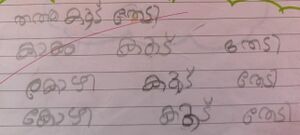 തത്ത കൂട് തേടി
കാക്ക കൂട് തേടി
കോഴി കൂട് തേടി
കോഴി കൂട് തേടി